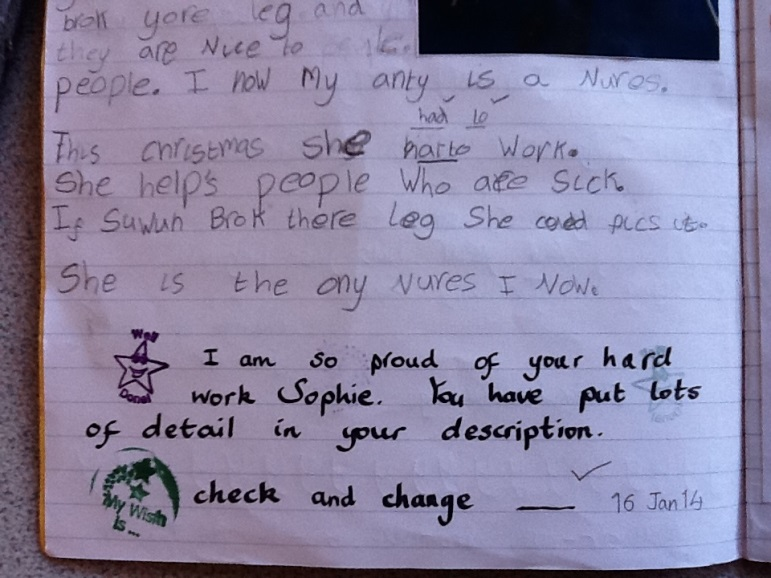 brok yore leg and
they are Nice to
people. I now My anty is a Nures.
had to
This christmas she harto Work.
She helps people Who are Sick.
If Suwun Brok there leg She coed pics it.
She is the ony Nures I Now.
Well Done!
I am so proud of your hard
work Sophie. You have put lots
of detail in your description.
My Wish is...
check and change ___ 16 Jan 14